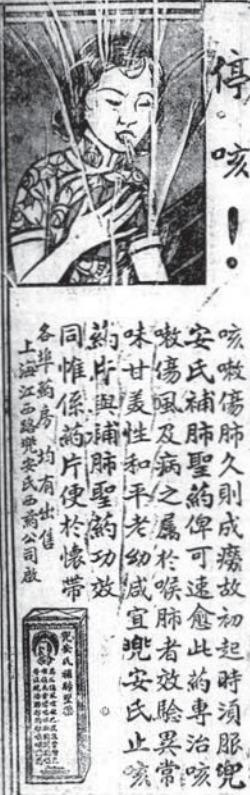 停咳！
咳嗽傷肺久則成癆故初起時須服兜
安氏補肺聖藥俾可速愈此藥專治咳
嗽傷風及病之屬於喉肺者效驗異常
味甘美性和平老幼咸宜兜安氏止咳
藥片與補肺聖藥功效
同惟係藥片便於懷帶
各埠藥房均有出售
上海江西路兜安氏西藥公司啟
兜安氏補肺聖藥